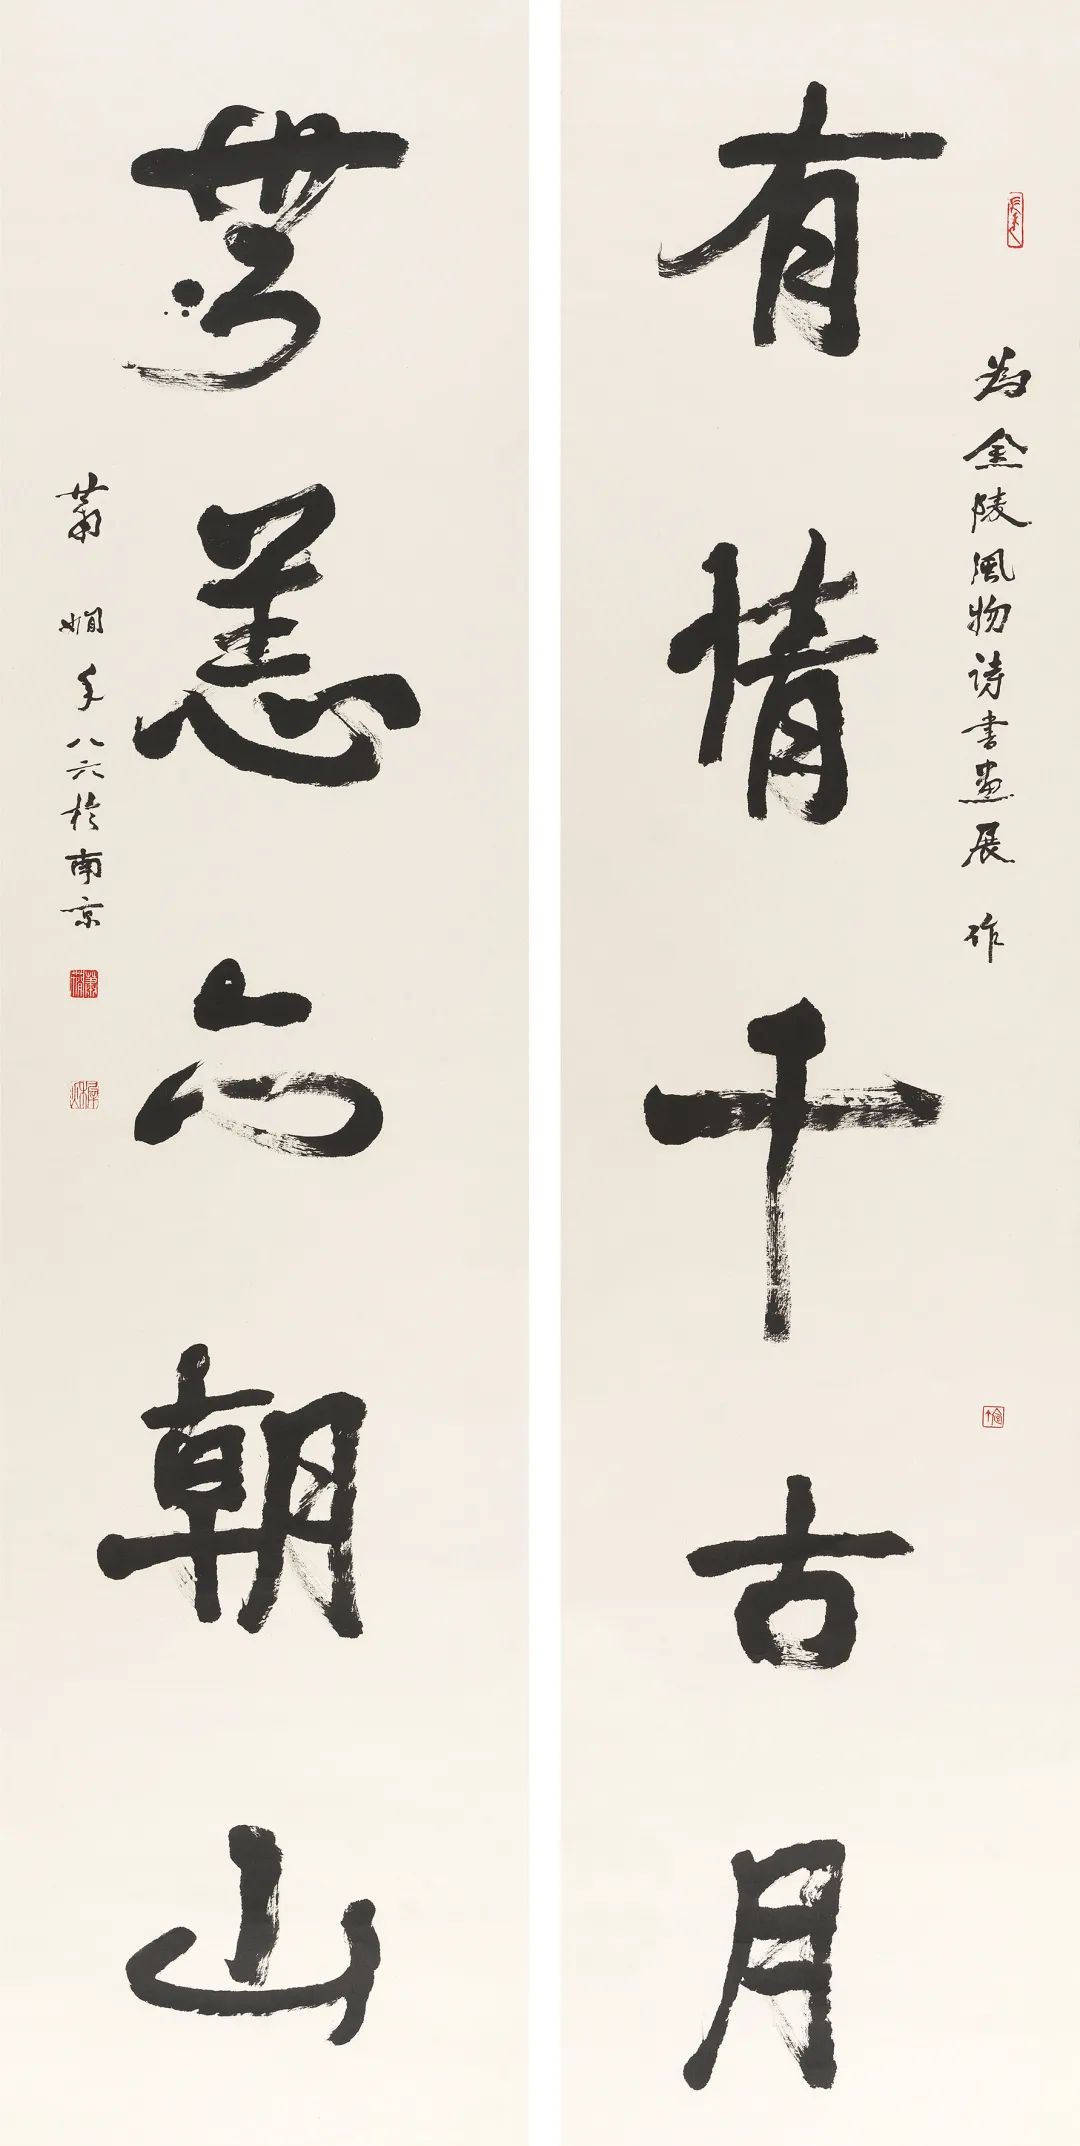 有情千古月
為金陵風物诗書畫展作
無恙六朝山
蕭嫻年八六於南京